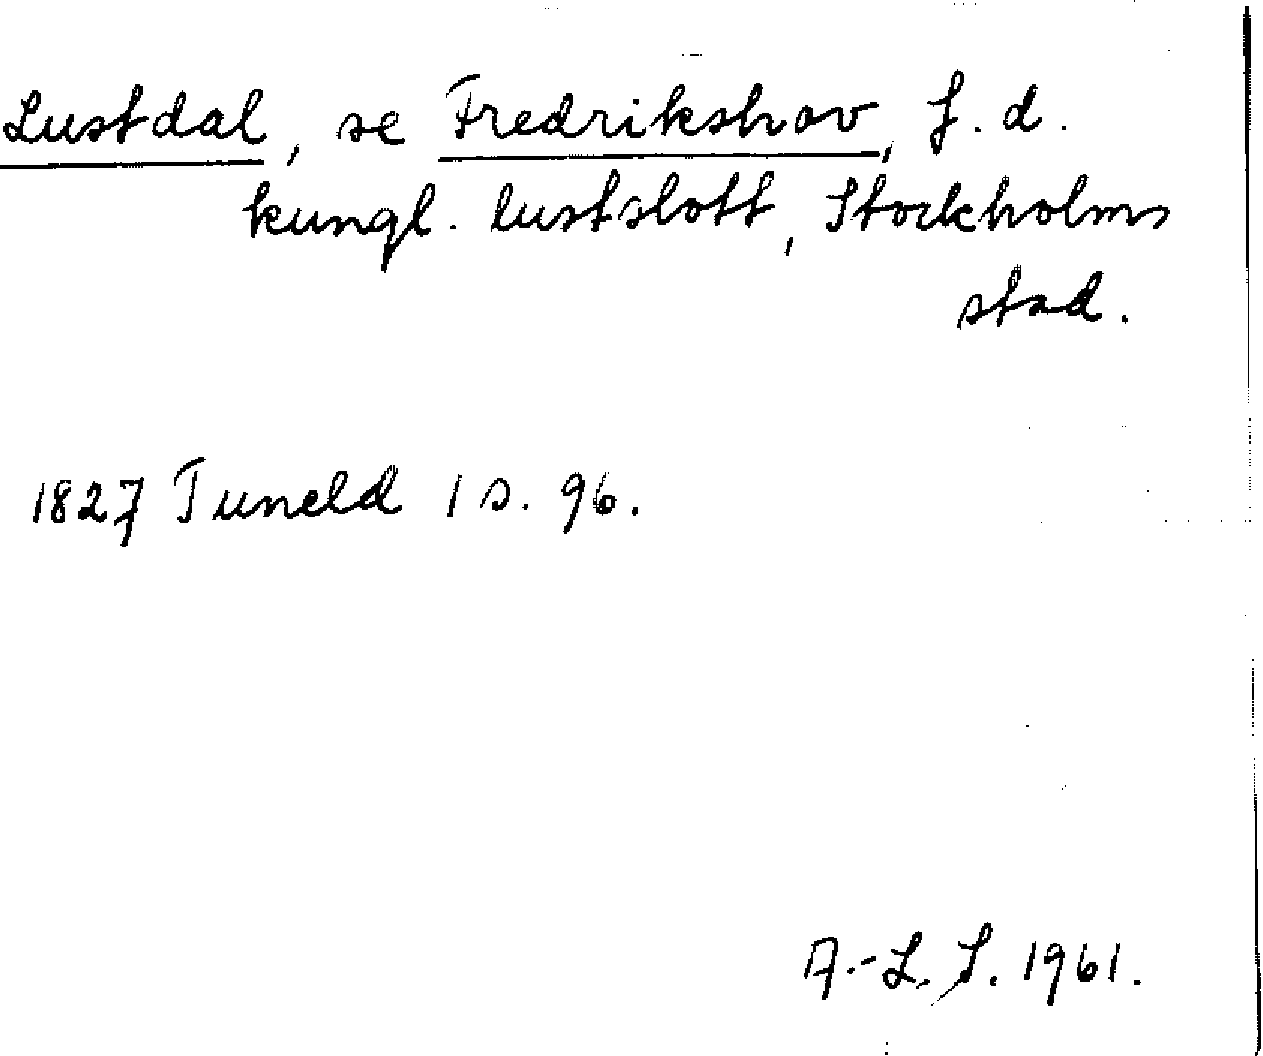 Lustdal, se Fredrikshov, f. d.
kungl. lustslott, Stockholms
stad.
1827 Tuneld 1 s. 96.
A.-L. S. 1961.